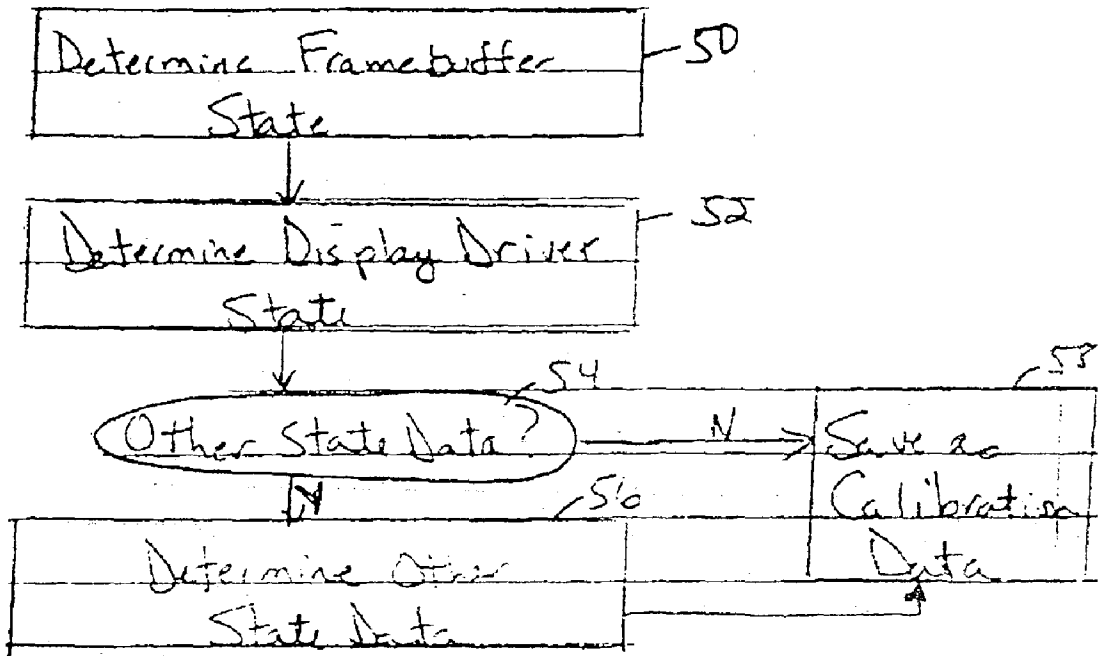 Determine Framebuffer
State
50
Determine Display Driver
State
52
Other State Data?
54
N
Save as
Calibration
Data
58
Y
Determine Other
State Data
56